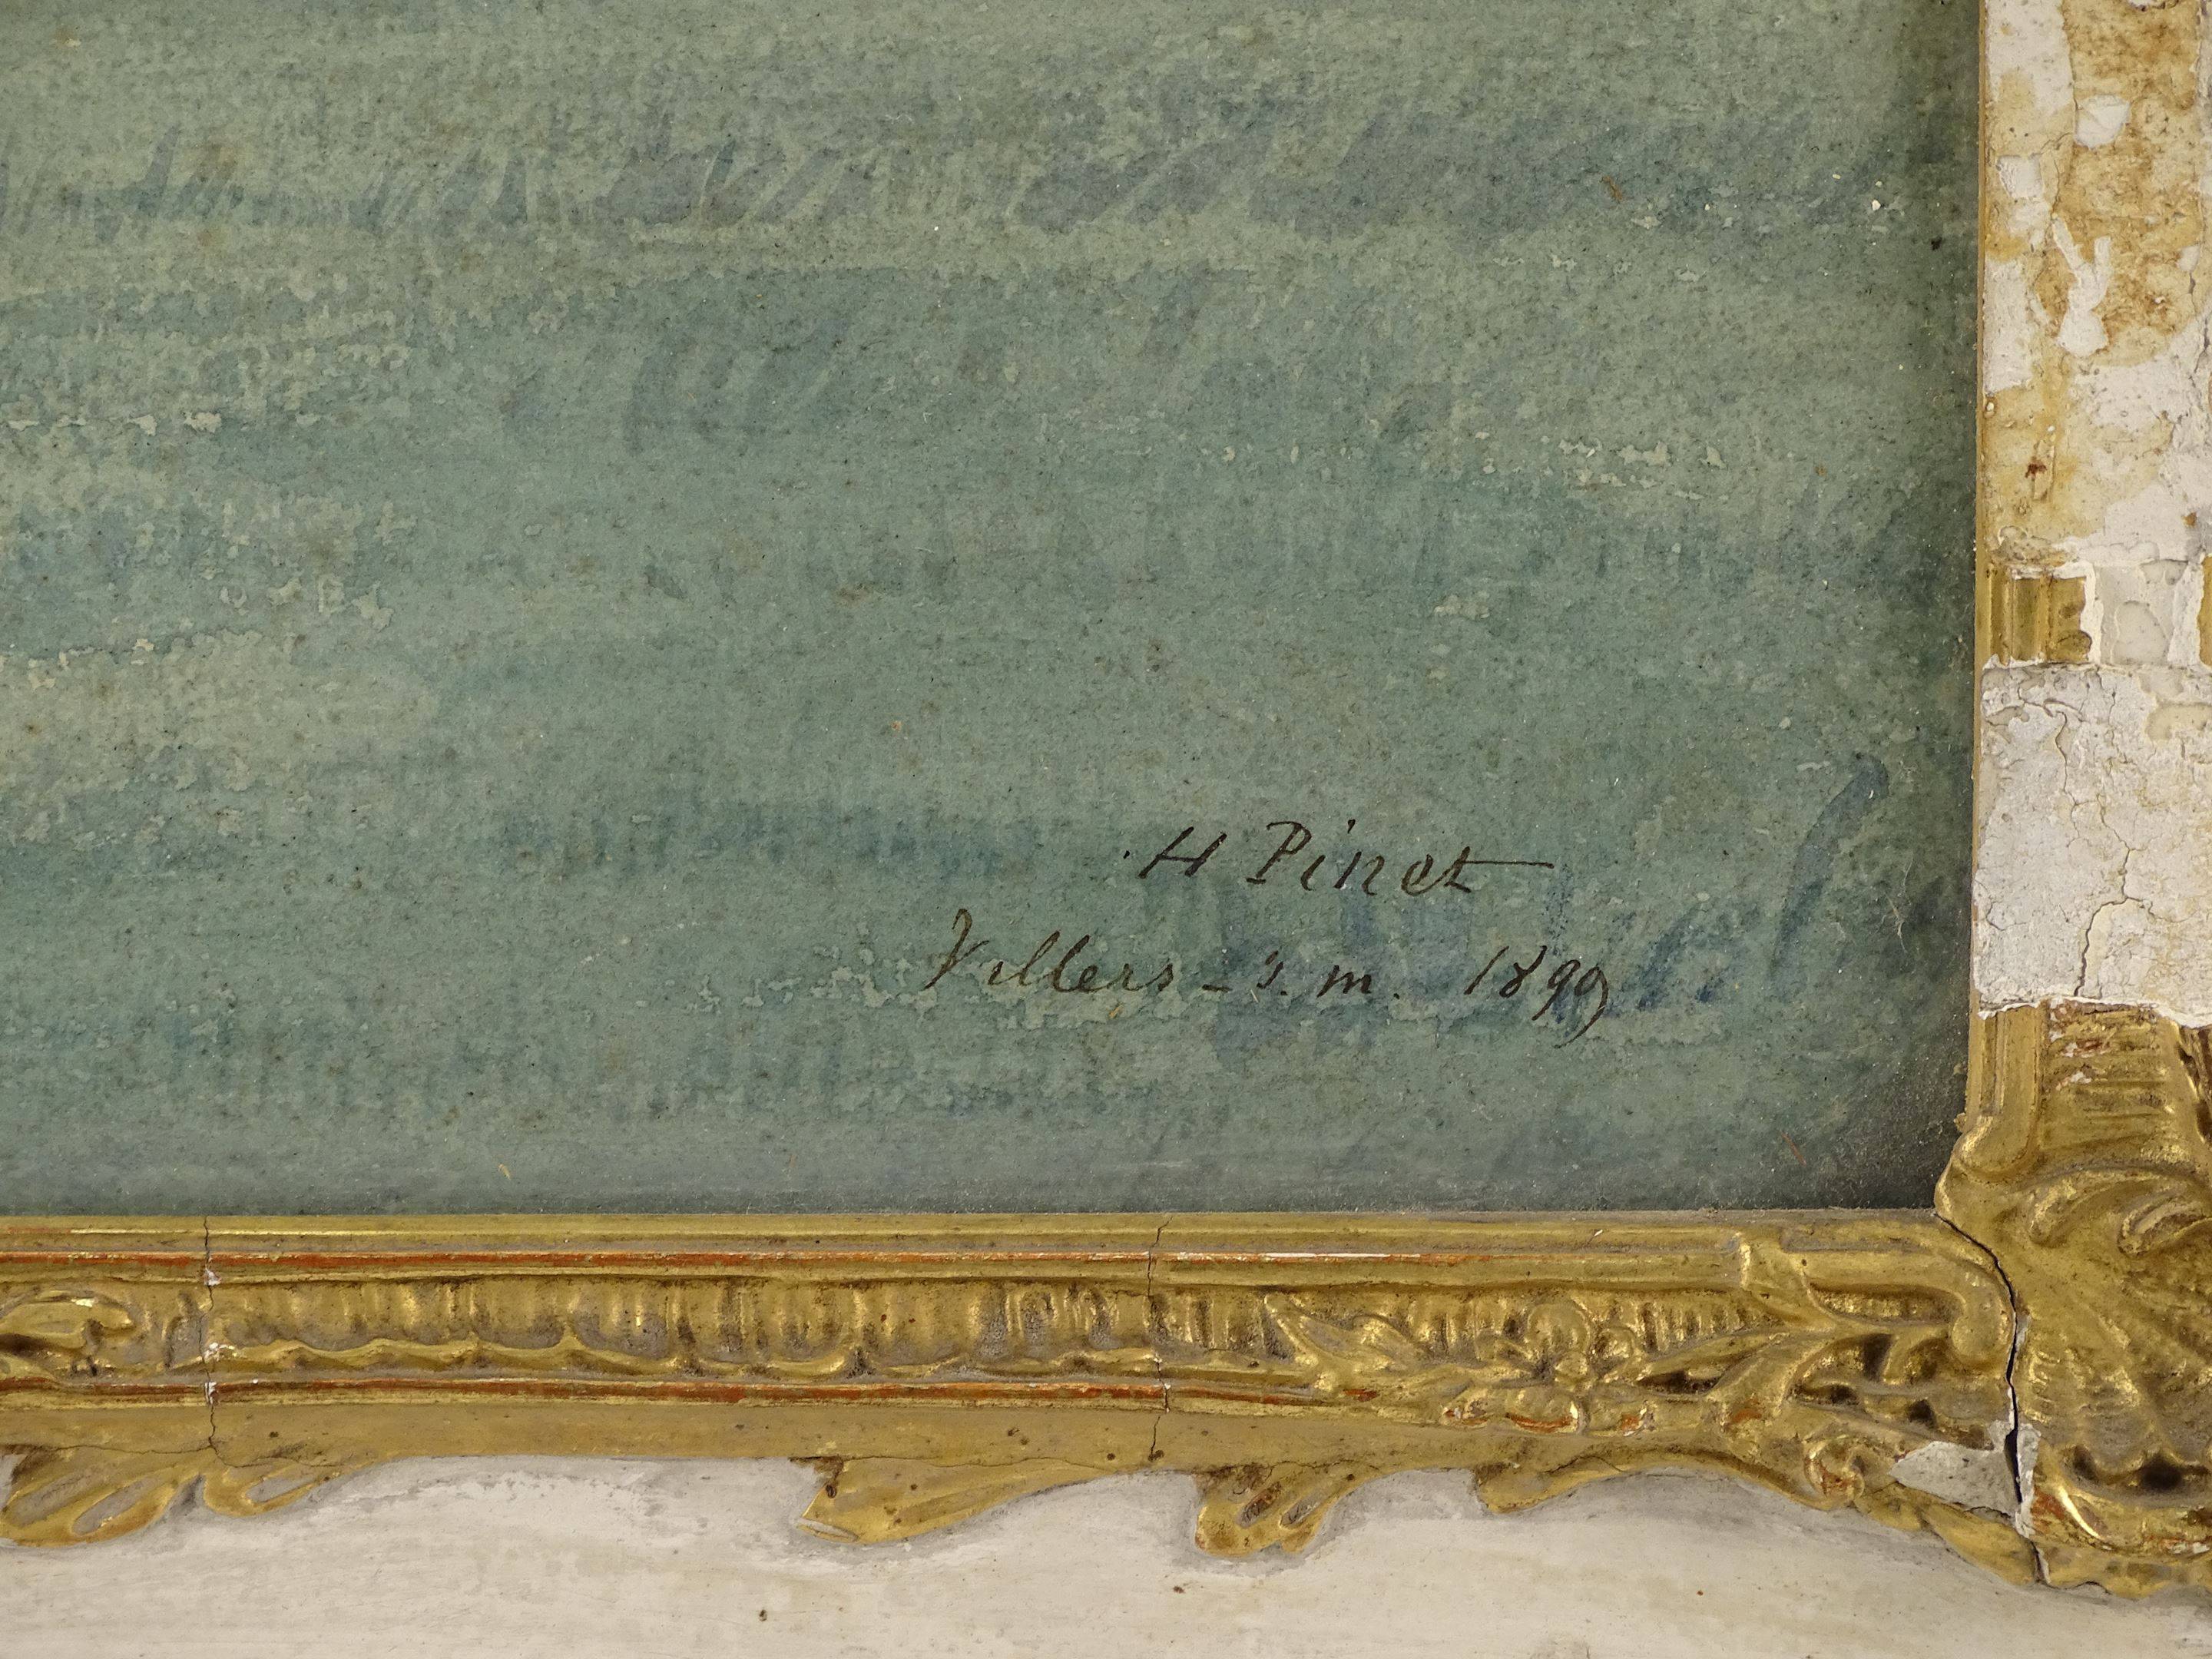 H Pinet
Villers - s. m. 1899